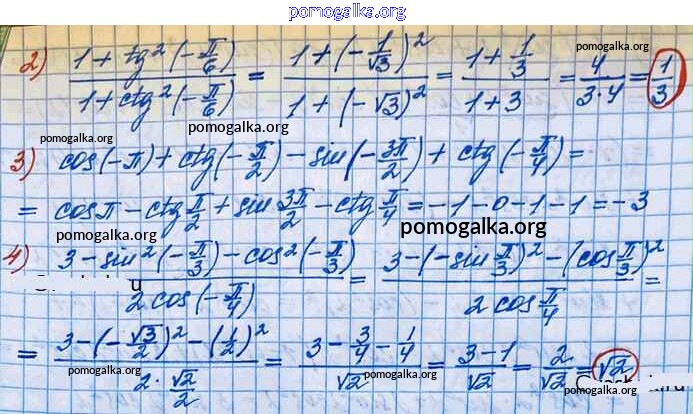 pomogalka.org
2) (1 + tg²(-π/6))/(1 + ctg²(-π/6)) = (1 + (-1/√3)²)/(1 + (-√3)²) = (1 + 1/3)/(1 + 3) = 4/(3·4) = 1/3
pomogalka.org
pomogalka.org
pomogalka.org
pomogalka.org
3) cos(-π) + ctg(-π/2) - sin(-3π/2) + ctg(-π/4) =
= cosπ - ctg π/2 + sin 3π/2 - ctg π/4 = -1 - 0 - 1 - 1 = -3
pomogalka.org
pomogalka.org
4) (3 - sin²(-π/3) - cos²(-π/3))/(2 cos(-π/4)) = (3 - (-sin π/3)² - (cos π/3)²)/(2 cos π/4) =
= (3 - (-√3/2)² - (1/2)²)/(2·√2/2) = (3 - 3/4 - 1/4)/√2 = (3 - 1)/√2 = 2/√2 = √2
pomogalka.org
pomogalka.org
pomogalka.org